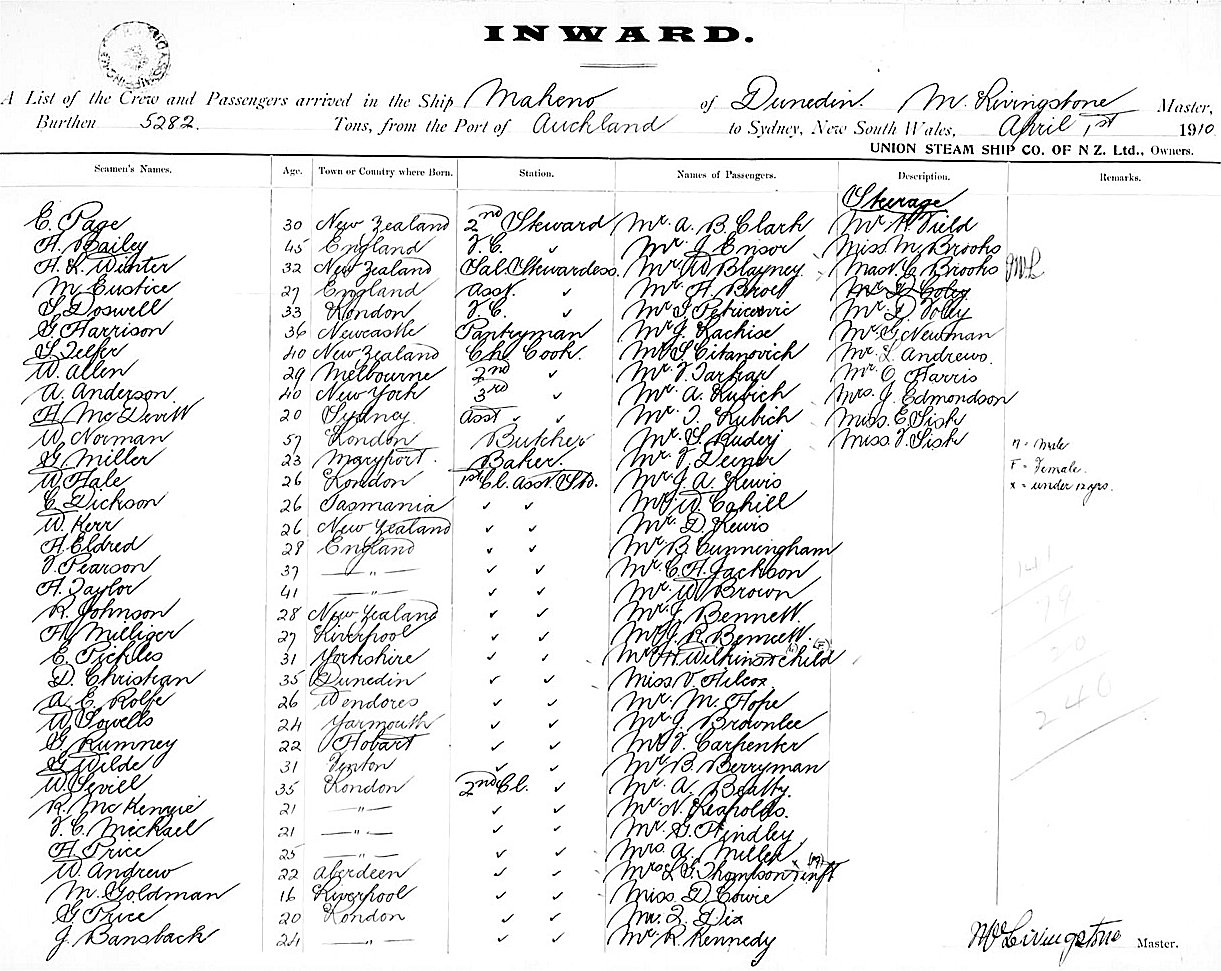 INWARD.
A List of the Crew and Passengers arrived in the Ship Makeno of Dunedin. M. Livingstone Master,
Burthen 5282. Tons, from the Port of Auckland to Sydney, New South Wales, April 1st 1910
UNION STEAM SHIP CO. OF N Z. Ltd., Owners.
Seamen's Names. Age. Town or Country where Born. Station. Names of Passengers. Description. Remarks.
Steerage
E. Page 30 New Zealand 2nd Steward Mr. A. B. Clark Mr. H. Field
A. Bailey 45 England F.C. ✓ Mr. J. Ensor Miss M. Brooks
A. L. Winter 32 New Zealand Sal. Stewardess. Mr. W. Blayney Mast. C. Brooks
M. Eustice 27 England Asst. ✓ Mr. H. Broet Mr. D. Coley
S. Doswell 33 London F.C. ✓ Mr. S. Petricevic Mr. D. Tolly
G. Harrison 36 Newcastle Pantryman Mr. J. Mr. G. Newman
S. Telfer 40 New Zealand Ch. Cook. Mr. S. Citanovich Mr. L. Andrews.
W. Allen 29 Melbourne 2nd ✓ Mr. Mr. C. Harris
A. Anderson. 40 New York 3rd ✓ Mr. A. Kubich Mrs. J. Edmondson
H. McDevitt 20 Sydney. Asst ✓ ✓ Mr. T. Kubich Miss. E. Sisk
W. Norman 57 London Butcher Mr. S. Ruderj Miss V. Sisk
G. Miller 23 Maryport. Baker. Mr. V. m = Male
W. Hale 26 London 1st Cl. Asst. Std. Mr. J. A. Lewis F = Female.
C. Dickson 26 Tasmania ✓ ✓ Mr. W. Cahill x = under 12 yrs.
W. Kerr 26 New Zealand ✓ ✓ Mr. D. Lewis
A. Eldred 28 England ✓ ✓ Mr. B. Cunningham
F. Pearson 37 — " — ✓ ✓ Mr. C. H. Jackson 141
A. Taylor 41 — " — ✓ ✓ Mr. W. Brown 79
R. Johnson 28 New Zealand ✓ ✓ Mr. J. Bennett.
H. Milliger 27 Liverpool ✓ ✓ Mr. J. R. Bennett. 20
E. Pickles 31 Yorkshire ✓ ✓ Mr. H. Wilkins & child
D. Christian 35 Dunedin ✓ ✓ Miss V. Hilcox 240
A. E. Rolfe 26 Wendores ✓ ✓ Mr. M. Hope
W. Sowells 24 Yarmouth ✓ ✓ Mr. J. Brownlee
G. Rumney 22 Hobart ✓ ✓ Mr. F. Carpenter
G. Wilde 31 ✓ ✓ Mr. B. Berryman
W. Sevill 35 London 2nd Cl. ✓ Mr. A. Beatty.
R. McKenzie 21 — " — ✓ ✓ Mr. N. Leapolds.
F. C. Michael 21 — " — ✓ ✓ Mr. G. Hindley
A. Price 25 — " — ✓ ✓ Mrs. A. Miller
W. Andrew 22 Aberdeen ✓ ✓ Mrs. L. G. Thompson & inft
M. Goldman 16 Liverpool ✓ ✓ Miss. D. Cowie
G. Price 20 London ✓ ✓ Mr. Q. Dix
J. Bansback 24 — " — ✓ ✓ Mr. R. Kennedy
M Livingstone Master.